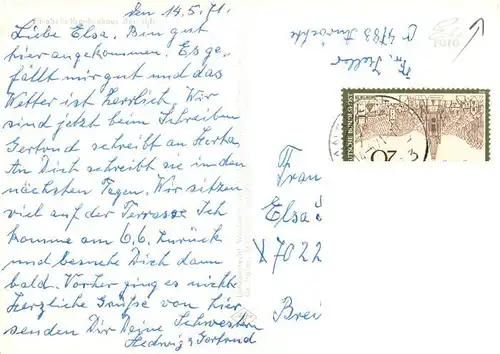 den 14.5.71.
Liebe Elsa. Bin gut
hier angekommen. Es ge-
fällt mir gut und das
Wetter ist herrlich. Wir
sind jetzt beim Schreiben
Gertrud schreibt an Herta
An Dich schreibt sie in den
nächsten Tagen. Wir sitzen
viel auf der Terrasse Ich
komme am 6.6. zurück
und besuche Dich dann
bald. Vorher ging es nicht
Herzliche Grüße von hier
senden Dir Deine Schwestern
Hedwig & Gertrud
Frau
Elsa
7022
Brei